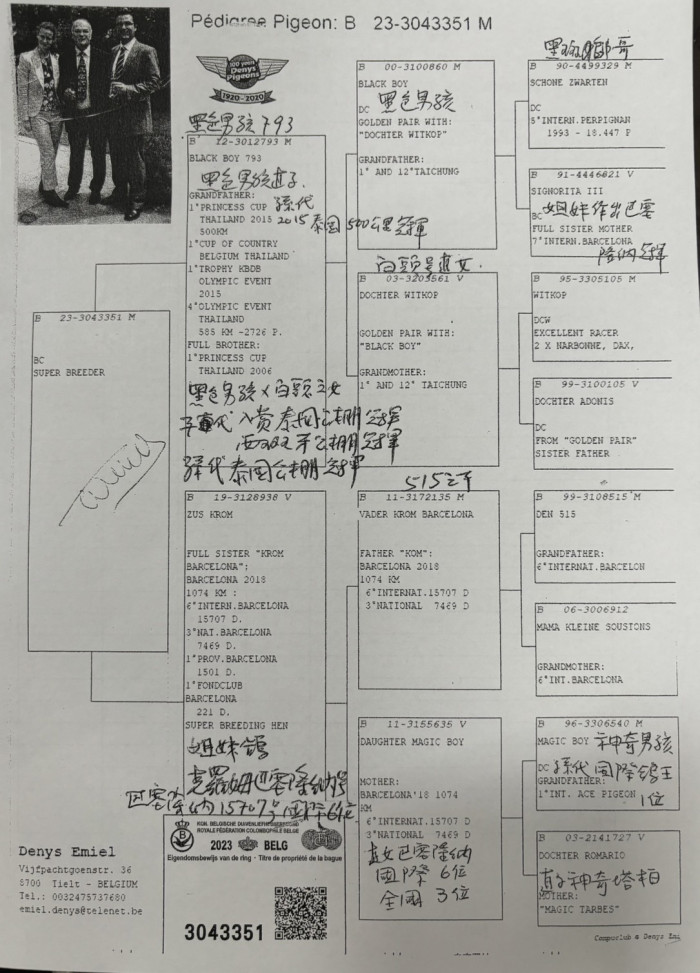 Pédigree Pigeon: B 23-3043351 M
100 years
Denys
Pigeons
1920-2020
B 23-3043351 M
BC
SUPER BREEDER
黑色男孩793
B 12-3012793 M
BLACK BOY 793
黑色男孩直子
GRANDFATHER:
1°PRINCESS CUP 孫代
THAILAND 2015 2015泰国500公里冠軍
500KM
1°CUP OF COUNTRY
BELGIUM THAILAND
1°TROPHY KBDB
OLYMPIC EVENT
2015
4°OLYMPIC EVENT
THAILAND
585 KM -2726 P.
FULL BROTHER:
1°PRINCESS CUP
THAILAND 2006
黑色男孩×白頭之女
子直代入赏泰国公棚冠军
西双版纳公棚冠军
孫代泰国公棚冠軍
B 19-3128938 V
ZUS KROM
FULL SISTER "KROM
BARCELONA";
BARCELONA 2018
1074 KM :
6°INTERN.BARCELONA
15707 D.
3°NAT.BARCELONA
7469 D.
1°PROV.BARCELONA
1501 D.
1°FONDCLUB
BARCELONA
221 D.
SUPER BREEDING HEN
姐妹鴿
克羅姆巴塞隆納号
巴塞隆納15707羽国際6位
B 00-3100860 M
BLACK BOY
DC 黑色男孩
GOLDEN PAIR WITH:
"DOCHTER WITKOP"
GRANDFATHER:
1° AND 12°TAICHUNG
白頭号直女.
B 03-3203561 V
DOCHTER WITKOP
GOLDEN PAIR WITH:
"BLACK BOY"
GRANDMOTHER:
1° AND 12° TAICHUNG
515之子
B 11-3172135 M
VADER KROM BARCELONA
FATHER "KOM":
BARCELONA 2018
1074 KM
6°INTERNAT.15707 D
3°NATIONAL 7469 D
B 11-3155635 V
DAUGHTER MAGIC BOY
MOTHER:
BARCELONA'18 1074
KM
6°INTERNAT.15707 D
3°NATIONAL 7469 D
直女巴塞隆纳
国際6位
全国3位
B 90-4499329 M
SCHONE ZWARTEN
DC
5°INTERN.PERPIGNAN
1993 - 18.447 P
B 91-4446821 V
SIGNORITA III
BC 姐妹作出巴塞
FULL SISTER MOTHER
7°INTERN.BARCELONA
隆納冠軍
B 95-3305105 M
WITKOP
DCW
EXCELLENT RACER
2 X NARBONNE, DAX,
B 99-3100105 V
DOCHTER ADONIS
DC
FROM "GOLDEN PAIR"
SISTER FATHER
B 99-3108515 M
DEN 515
GRANDFATHER:
6°INTERNAT.BARCELON
B 06-3006912
MAMA KLEINE SOUSTONS
GRANDMOTHER:
6°INT.BARCELONA
B 96-3306540 M
MAGIC BOY 神奇男孩
DC 孫代国際鴿王
GRANDFATHER:
1°INT. ACE PIGEON 1位
B 03-2141727 V
DOCHTER ROMARIO
神奇塔柏
MOTHER:
"MAGIC TARBES"
Denys Emiel
Vijfpachtgoenstr. 36
8700 Tielt - BELGIUM
Tel.: 0032475737680
emiel.denys@telenet.be
KON. BELGISCHE DUIVENLIEFHEBBERSBOND
ROYALE FÉDÉRATION COLOMBOPHILE BELGE
2023 BELG
Eigendomsbewijs van de ring - Titre de propriété de la bague
3043351
Compuclub © Denys Emi